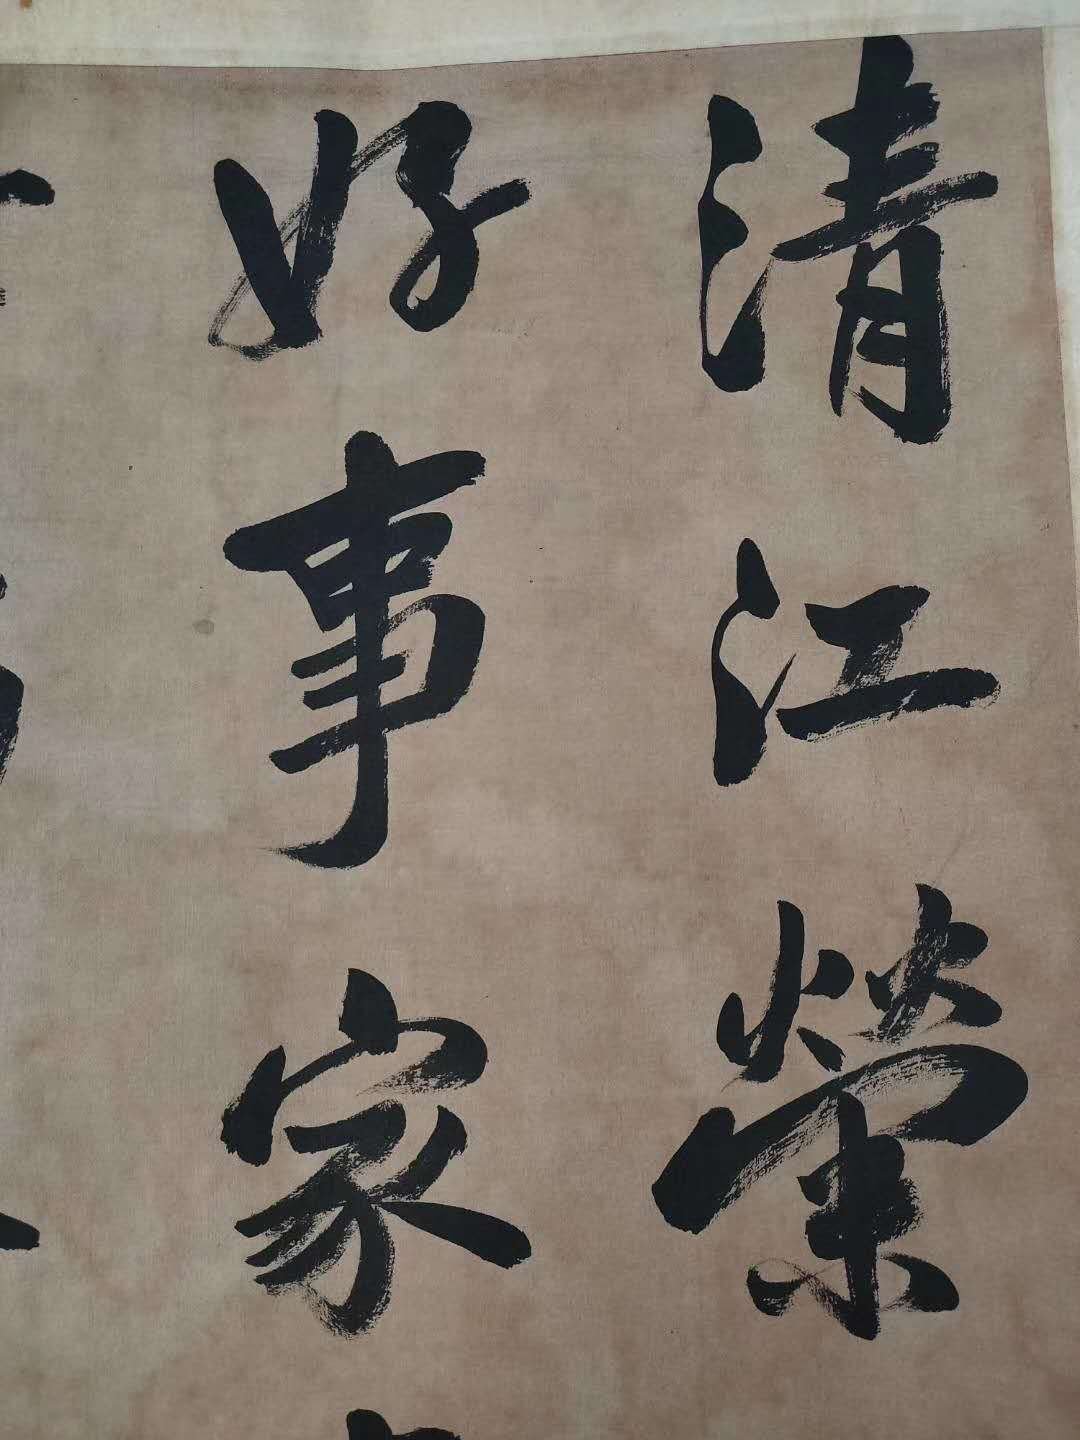 清江縈
好事家